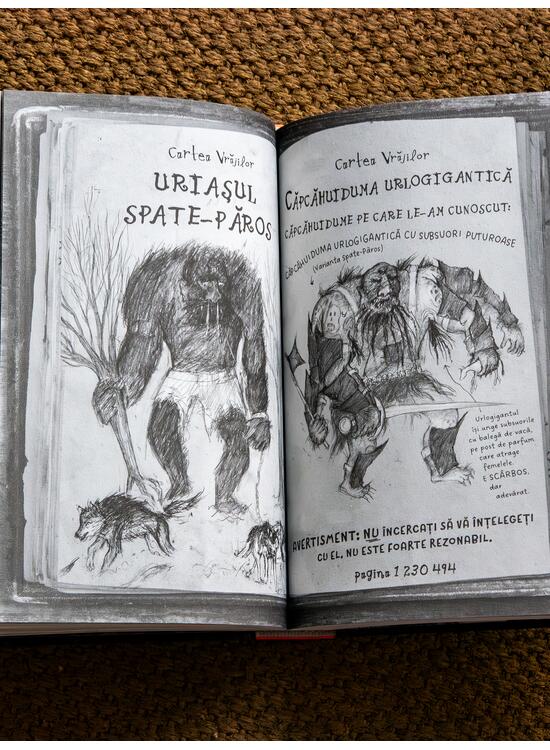 Cartea Vrăjilor
URIAȘUL
SPATE-PĂROS
Cartea Vrăjilor
CĂPCĂHUIDUMA URLOGIGANTICĂ
CĂPCĂHUIDUME PE CARE LE-AM CUNOSCUT:
CĂPCĂHUIDUMA URLOGIGANTICĂ CU SUBSUORI PUTUROASE
(Varianta Spate-Păros)
Urlogigantul
își unge subsuorile
cu balegă de vacă,
pe post de parfum
care atrage
femelele.
E SCÂRBOS,
dar
adevărat.
AVERTISMENT: NU ÎNCERCAȚI SĂ VĂ ÎNȚELEGEȚI
CU EL, NU ESTE FOARTE REZONABIL.
pagina 1 230 494